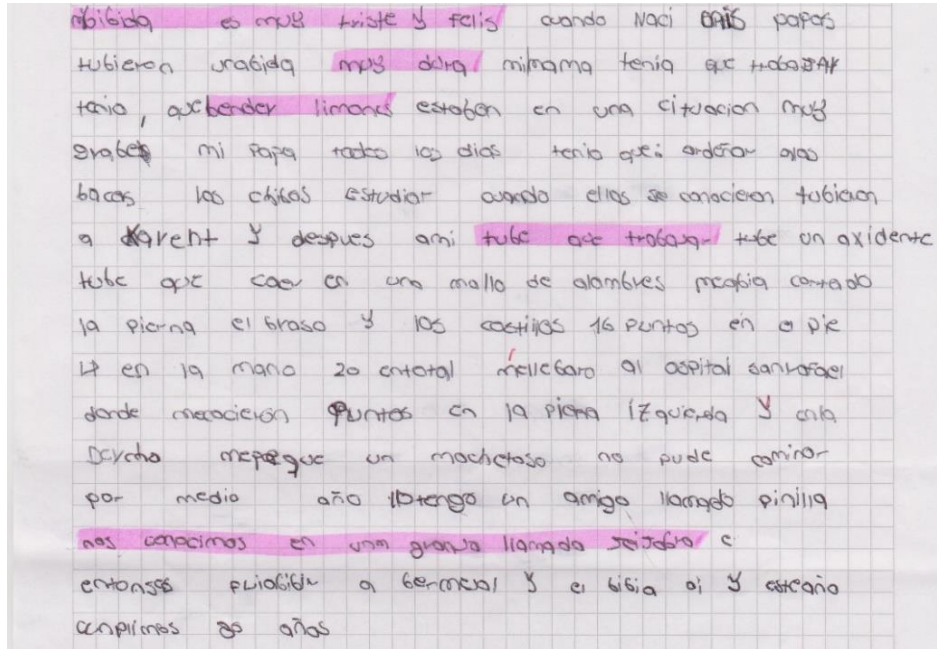 mibibida es muy triste y felis cuando Naci mis papas
tubieron unabida muy dura mimama tenia que trobajar
tenia, quebender limones estaban en una cituacion muy
grabes mi papa todos los dias tenia que ordeñar alas
bacas los chibos estudiar cuando ellos se conocieron tubieron
a Karent y despues ami tube que trobajar tube un axidente
tube que caer en una malla de alambres meabia cortado
la pierna el braso y las costillas 16 puntos en e pie
4 en la mano 20 entotal mellebaro al ospital sanrafael
donde mecocieron puntos en la pierna izquierda y enla
Derecha mepegue un machetaso no pude caminar
por medio año llotengo un amigo llamado pinilla
nos conocimos en una granja llamada e
entonses a bermeal y el bibia ai y esteaño
cunplimos años